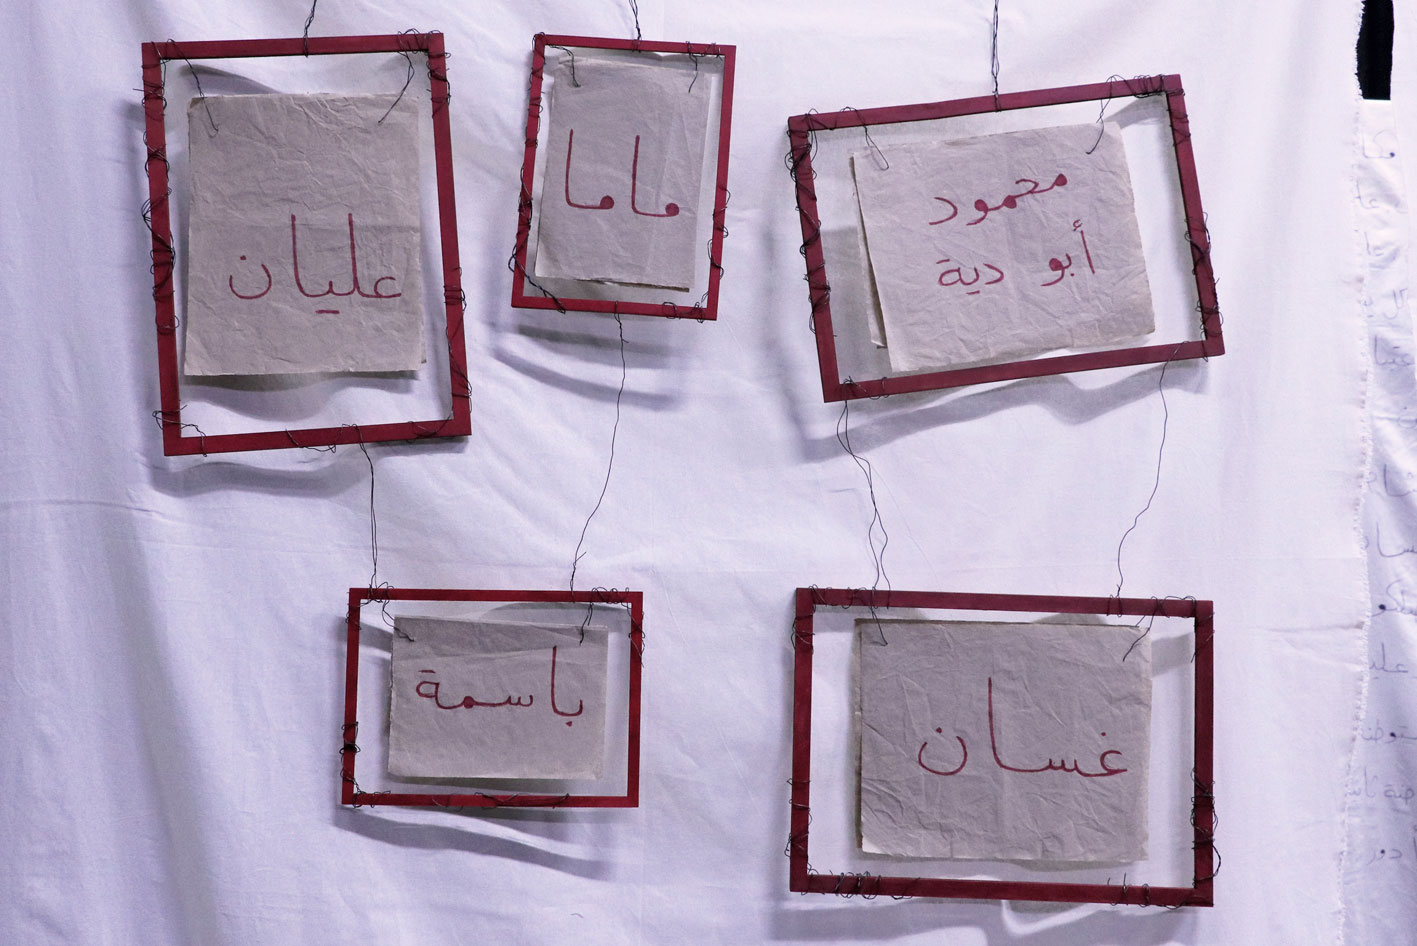 محمود
أبو دية
ماما
عليان
غسان
باسمة